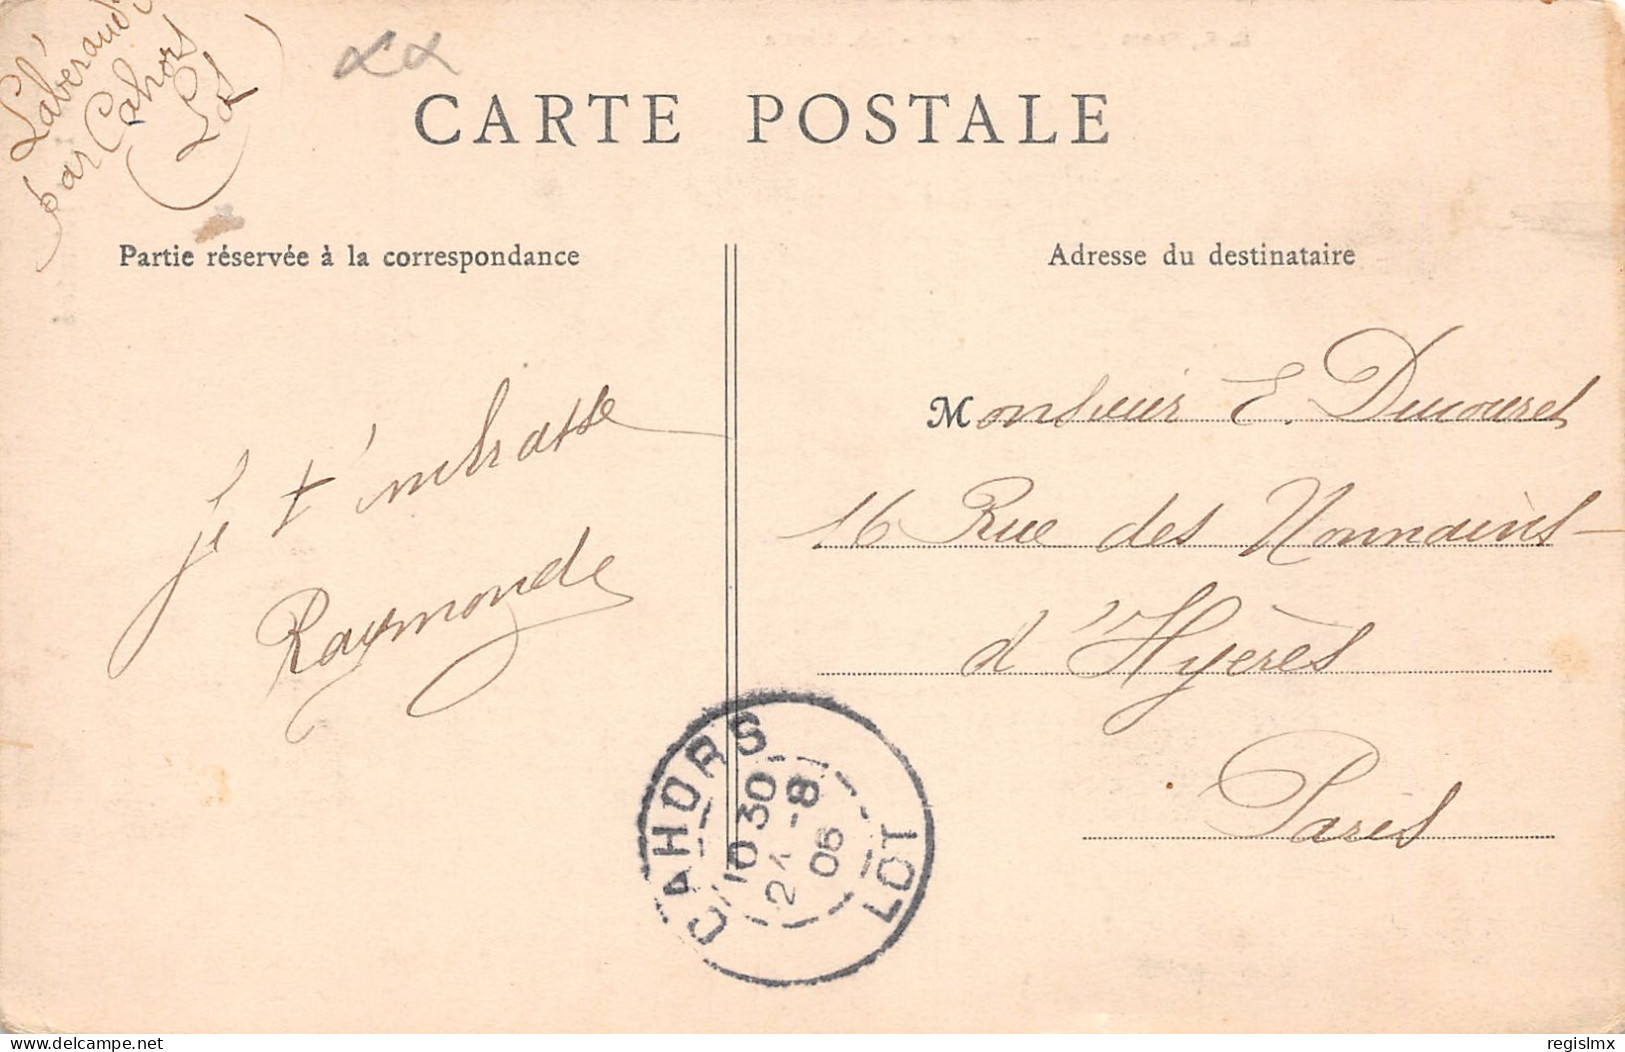 Labéraudie
par Cahors
(Lot)
CARTE POSTALE
Partie réservée à la correspondance
Adresse du destinataire
je t'embrasse
Raymonde
Monsieur E. Ducouret
16 Rue des Nonnains-
d'Hyères
Paris
CAHORS
10 30
24 -8
06
LOT
delcampe.net
regislmx